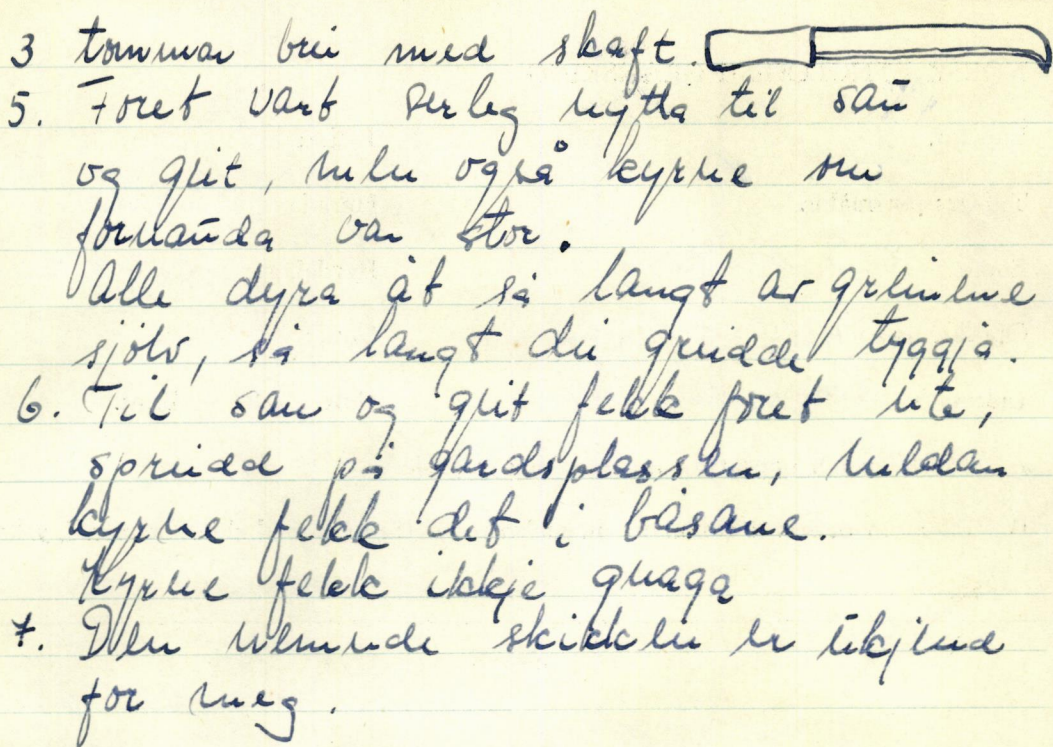 3 tommar brei med skaft.
5. Foret vart serleg nytta til sau
og geit, men også kyrne om
fornauda var stor.
Alle dyra åt så langt av greinene
sjølv, så langt dei greidde tyggja.
6. Til sau og geit fekk foret ute,
spreidd på gardsplassen, medan
kyrne fekk det i båsane.
Kyrne fekk ikkje gnaga
7. Den nemnde skikken er ukjend
for meg.